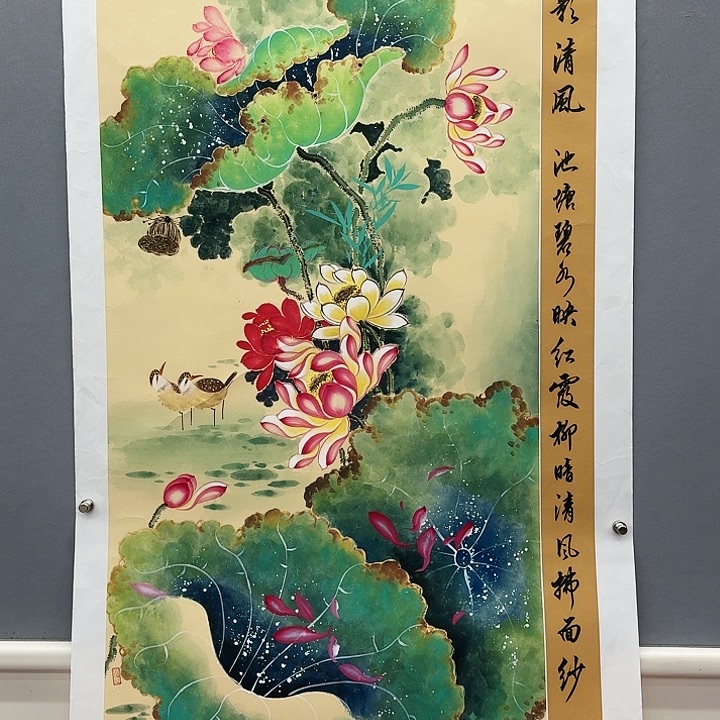 影清風 池塘碧水映红霞柳暗清风拂面纱